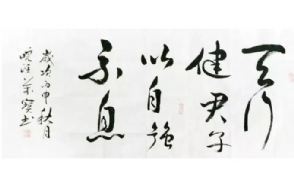 天行
健君子
以自強
不息
歲次丙申秋月